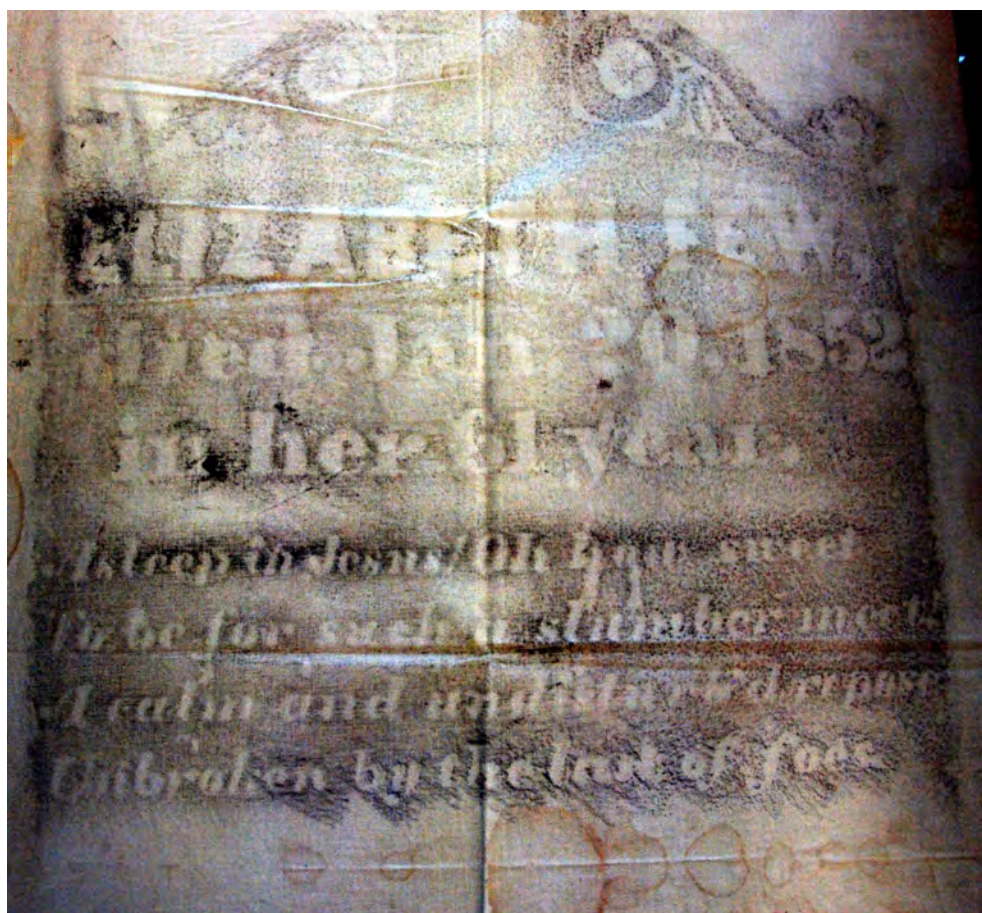 ELIZABETH
died Jan. 20. 1852
in her 61 year.
Asleep in Jesus! Oh how sweet
To be for such a slumber meet!
A calm and undisturb'd repose
Unbroken by the last of foes.